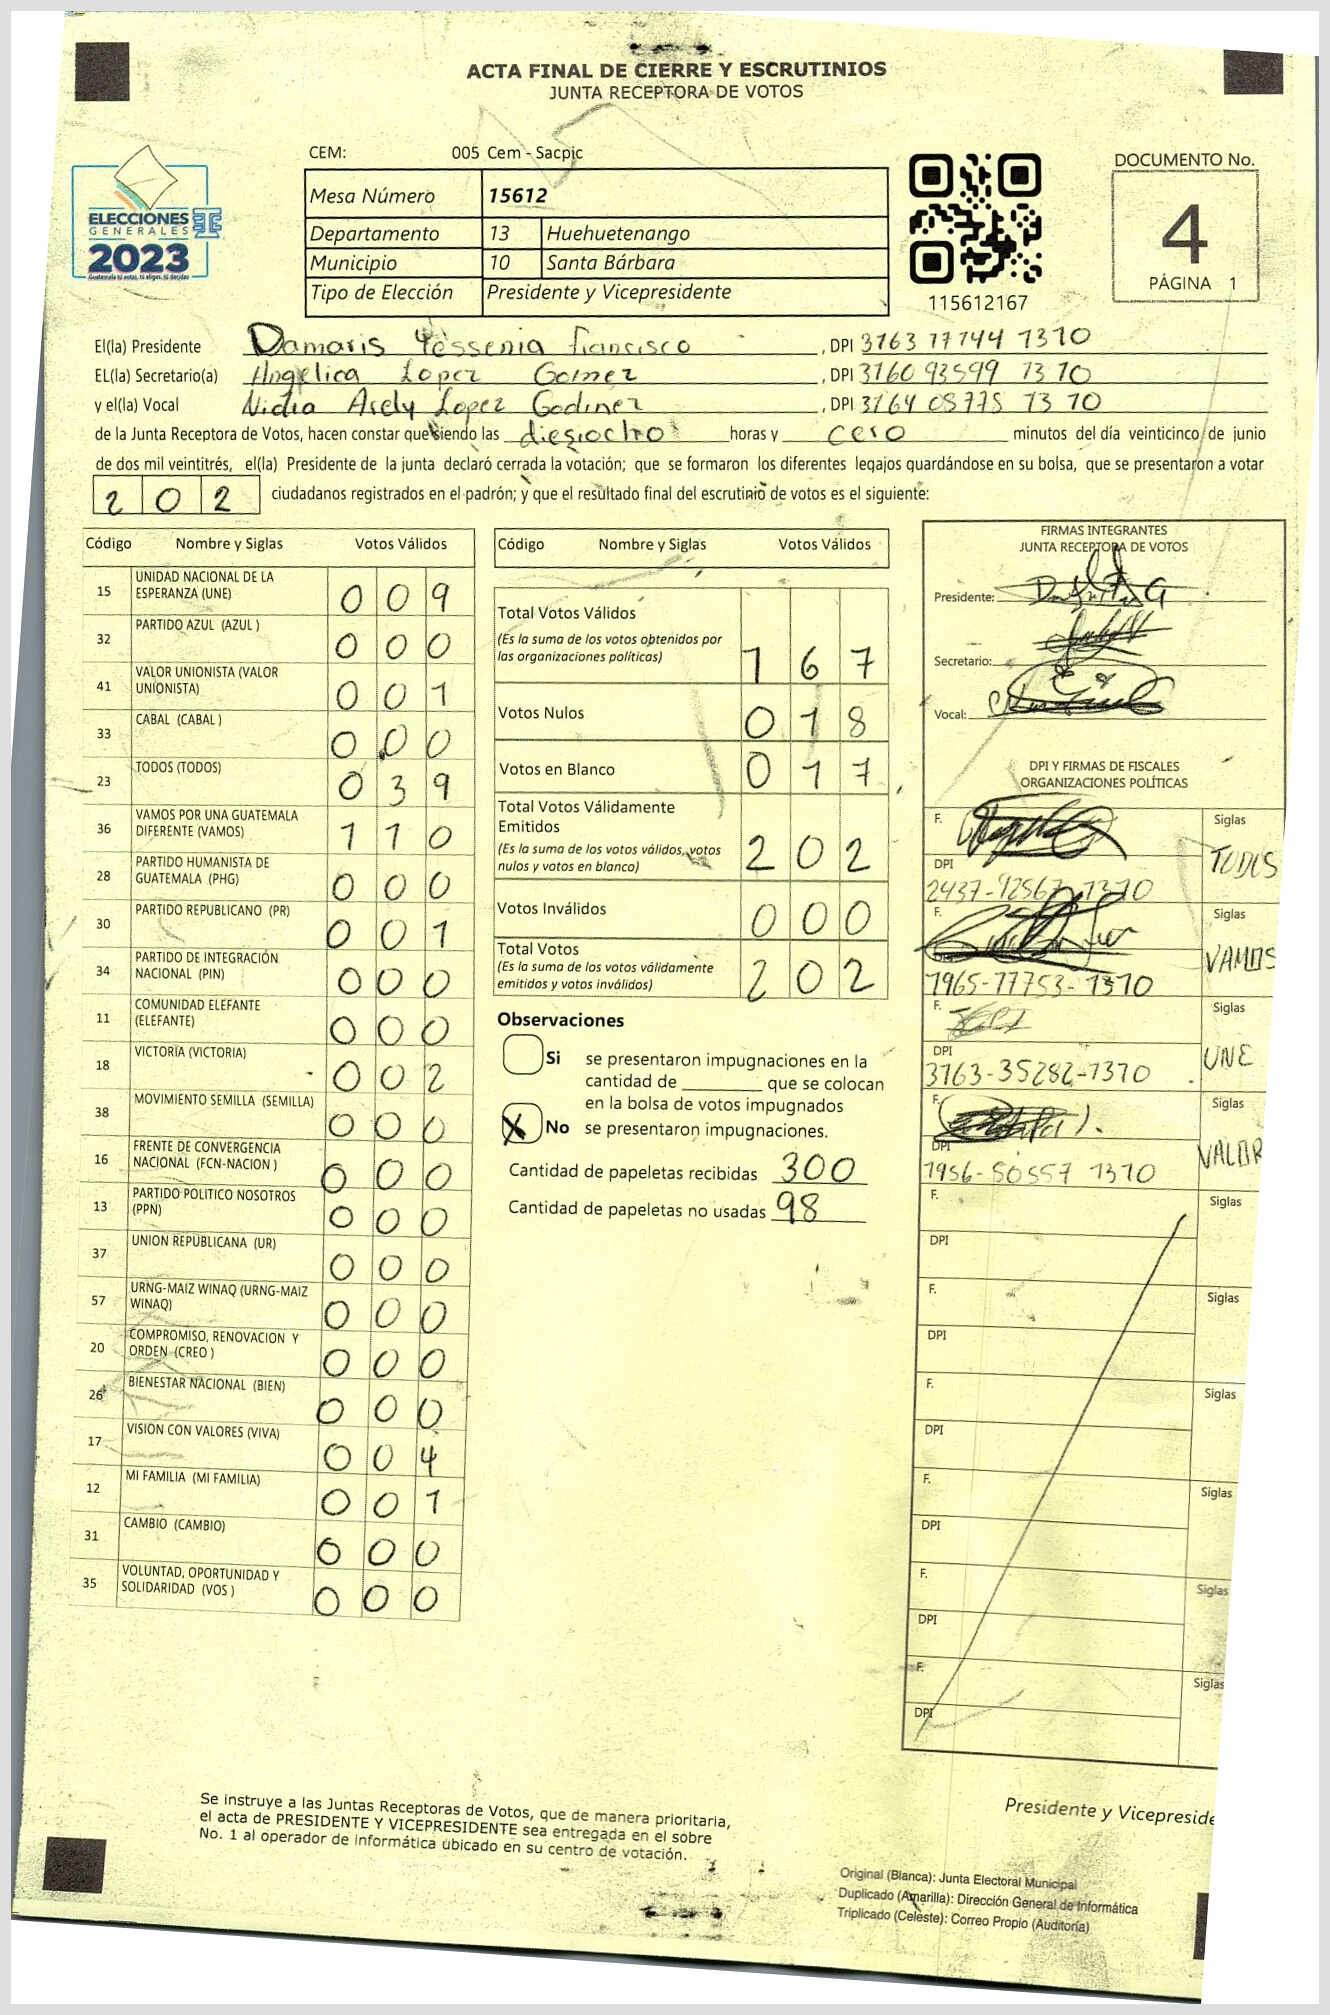 ACTA FINAL DE CIERRE Y ESCRUTINIOS
JUNTA RECEPTORA DE VOTOS
CEM: 005 Cem - Sacpic
DOCUMENTO No.
4
PÁGINA 1
ELECCIONES
GENERALES
2023
Guatemala tú votas, tú eliges, tú decides
Mesa Número 15612
Departamento 13 Huehuetenango
Municipio 10 Santa Bárbara
Tipo de Elección Presidente y Vicepresidente
115612167
El(la) Presidente Damaris Yessenia Francisco , DPI 3163 17744 1310
EL(la) Secretario(a) Angelica Lopez Gomez , DPI 3160 93599 1310
y el(la) Vocal Nidia Arely Lopez Godinez , DPI 3164 05775 1310
de la Junta Receptora de Votos, hacen constar que siendo las diesiocho horas y cero minutos del día veinticinco de junio
de dos mil veintitrés, el(la) Presidente de la junta declaró cerrada la votación; que se formaron los diferentes legajos guardándose en su bolsa, que se presentaron a votar
202 ciudadanos registrados en el padrón; y que el resultado final del escrutinio de votos es el siguiente:
Código Nombre y Siglas Votos Válidos
15 UNIDAD NACIONAL DE LA ESPERANZA (UNE) 009
32 PARTIDO AZUL (AZUL ) 000
41 VALOR UNIONISTA (VALOR UNIONISTA) 001
33 CABAL (CABAL ) 000
23 TODOS (TODOS) 039
36 VAMOS POR UNA GUATEMALA DIFERENTE (VAMOS) 110
28 PARTIDO HUMANISTA DE GUATEMALA (PHG) 000
30 PARTIDO REPUBLICANO (PR) 001
34 PARTIDO DE INTEGRACIÓN NACIONAL (PIN) 000
11 COMUNIDAD ELEFANTE (ELEFANTE) 000
18 VICTORIA (VICTORIA) 002
38 MOVIMIENTO SEMILLA (SEMILLA) 000
16 FRENTE DE CONVERGENCIA NACIONAL (FCN-NACION ) 000
13 PARTIDO POLITICO NOSOTROS (PPN) 000
37 UNION REPUBLICANA (UR) 000
57 URNG-MAIZ WINAQ (URNG-MAIZ WINAQ) 000
20 COMPROMISO, RENOVACION Y ORDEN (CREO ) 000
26 BIENESTAR NACIONAL (BIEN) 000
17 VISION CON VALORES (VIVA) 004
12 MI FAMILIA (MI FAMILIA) 001
31 CAMBIO (CAMBIO) 000
35 VOLUNTAD, OPORTUNIDAD Y SOLIDARIDAD (VOS ) 000
Código Nombre y Siglas Votos Válidos
Total Votos Válidos
(Es la suma de los votos obtenidos por las organizaciones políticas) 167
Votos Nulos 018
Votos en Blanco 017
Total Votos Válidamente Emitidos
(Es la suma de los votos válidos, votos nulos y votos en blanco) 202
Votos Inválidos 000
Total Votos
(Es la suma de los votos válidamente emitidos y votos inválidos) 202
Observaciones
Si se presentaron impugnaciones en la
cantidad de ________ que se colocan
en la bolsa de votos impugnados
X No se presentaron impugnaciones.
Cantidad de papeletas recibidas 300
Cantidad de papeletas no usadas 98
FIRMAS INTEGRANTES
JUNTA RECEPTORA DE VOTOS
Presidente:
Secretario:
Vocal:
DPI Y FIRMAS DE FISCALES
ORGANIZACIONES POLÍTICAS
F. Siglas TODOS
DPI 2437-92567-1310
F. Siglas VAMOS
1965-17753-1310
F. Siglas UNE
DPI 3163-35282-1310
F. Siglas VALOR
DPI 1956-50557 1310
F. Siglas
DPI
F. Siglas
DPI
F. Siglas
DPI
F. Siglas
DPI
F. Siglas
DPI
F. Siglas
DPI
Se instruye a las Juntas Receptoras de Votos, que de manera prioritaria,
el acta de PRESIDENTE Y VICEPRESIDENTE sea entregada en el sobre
No. 1 al operador de informática ubicado en su centro de votación.
Presidente y Vicepreside
Original (Blanca): Junta Electoral Municipal
Duplicado (Amarilla): Dirección General de Informática
Triplicado (Celeste): Correo Propio (Auditoría)